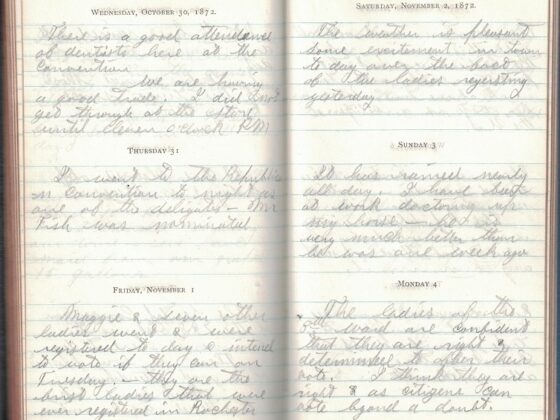 WEDNESDAY, OCTOBER 30, 1872.
There is a good attendance
of dentists here at the
Convention
We are having
a good trade. I did not
get through at the store
until eleven o'clock P.M
THURSDAY 31
I went to the Republic
n Convention to night as
one of the deligates - Mr
Fish was nominated
FRIDAY, NOVEMBER 1
Maggie & seven other
ladies went & were
registered to day & intend
to vote if they can on
Tuesday. - they are the
first ladies that were
ever registered in Rochester
SATURDAY, NOVEMBER 2, 1872.
The weather is pleasant
some excitement in town
to day over the
of the ladies registing
yesterday
SUNDAY 3
It has rained nearly
all day. I have been
at work doctoring up
my horse - he is
very much better than
he was one week ago
MONDAY 4
The ladies of the
ward are confident
that they are right &
determined to offer their
vote. I think they are
right & as citizens can
vote byond a doubt.